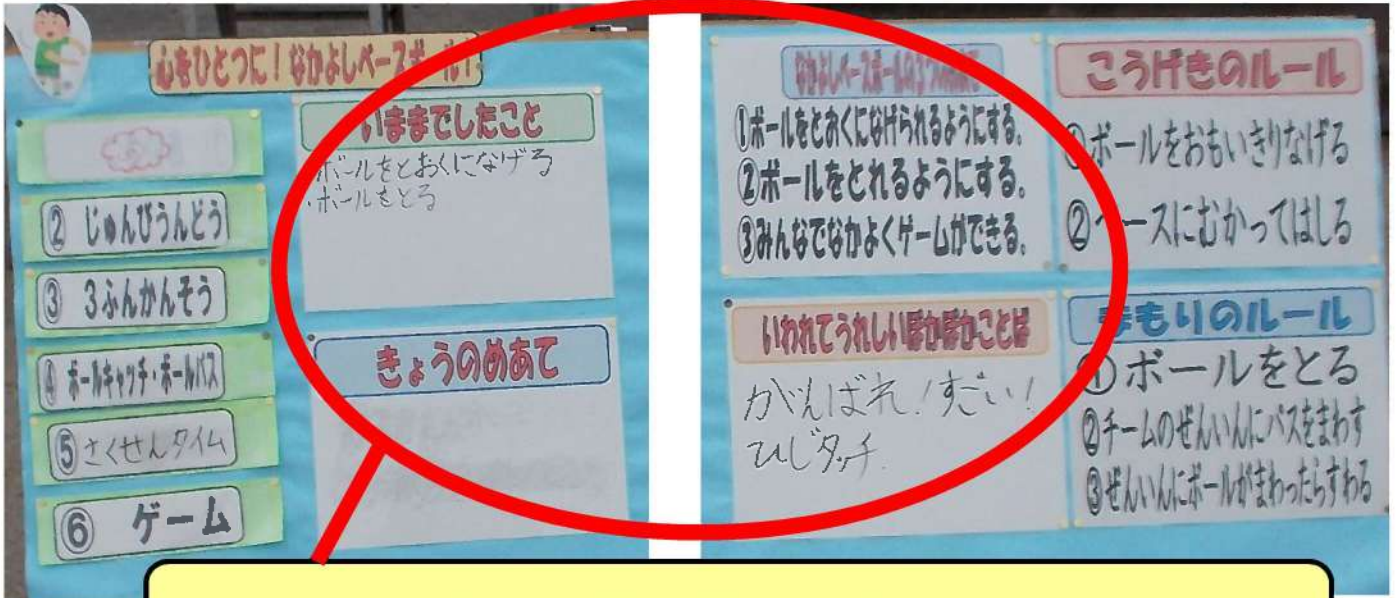 心をひとつに！なかよしベースボール！
② じゅんびうんどう
③ 3ふんかんそう
④ ボールキャッチ・ボールパス
⑤ さくせんタイム
⑥ ゲーム
いままでしたこと
・ボールをとおくになげる
・ボールをとる
きょうのめあて
なかよしベースボールの3つの
①ボールをとおくになげられるようにする。
②ボールをとれるようにする。
③みんなでなかよくゲームができる。
いわれてうれしいぽかぽかことば
がんばれ！すごい！
ひじタッチ
こうげきのルール
①ボールをおもいきりなげる
②ベースにむかってはしる
まもりのルール
①ボールをとる
②チームのぜんいんにパスをまわす
③ぜんいんにボールがまわったらすわる